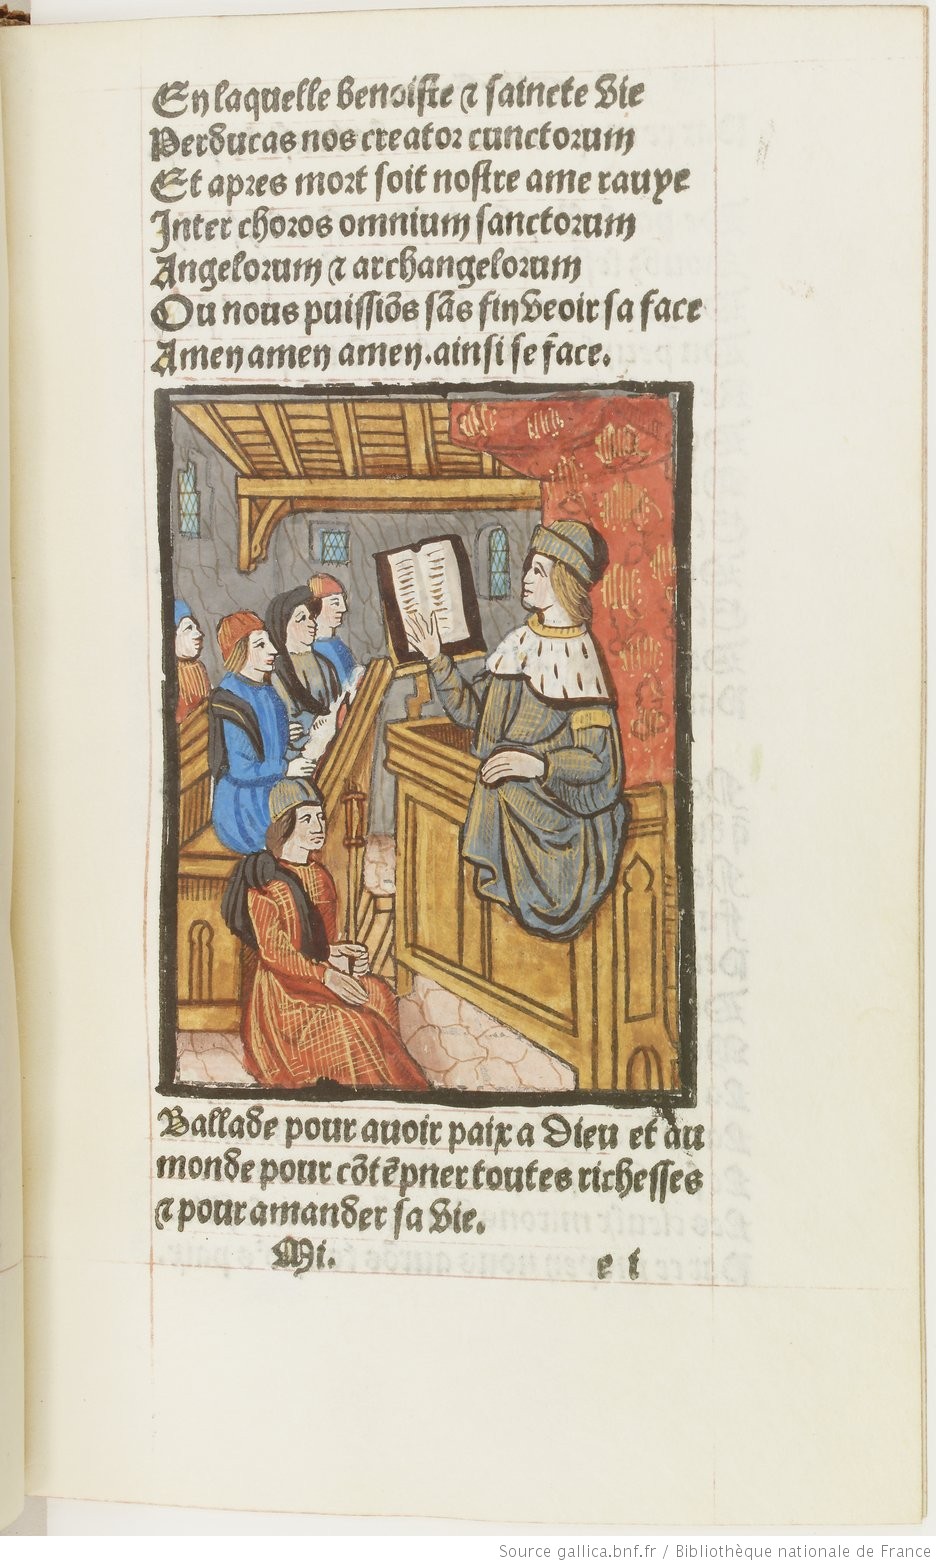 En laquelle benoiste ⁊ saincte vie
Perducas nos creator cunctorum
Et apres mort soit nostre ame rauye
Inter choros omnium sanctorum
Angelorum ⁊ archangelorum
Ou nous puissiōs sās fin veoir sa face
Amen amen amen. ainsi se face.
Ballade pour auoir paix a Dieu et au
monde pour cōtēpner toutes richesses
⁊ pour amander sa vie.
Mi. e i
Source gallica.bnf.fr / Bibliothèque nationale de France